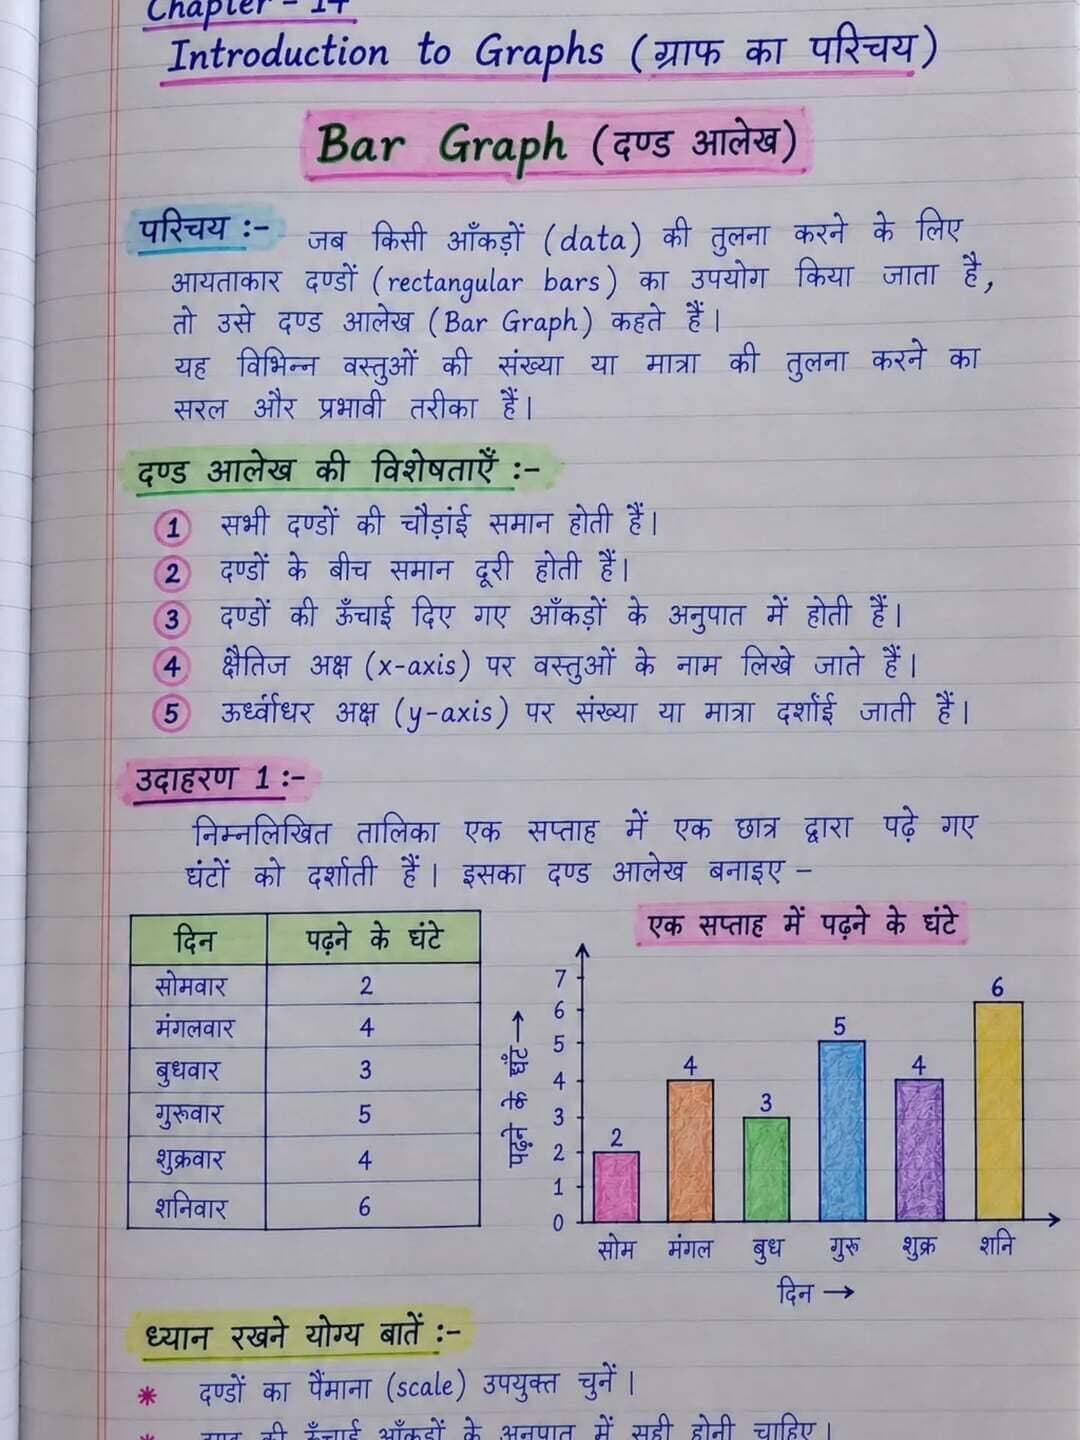 Chapter - 14
Introduction to Graphs (ग्राफ का परिचय)
Bar Graph (दण्ड आलेख)
परिचय :- जब किसी आँकड़ों (data) की तुलना करने के लिए
आयताकार दण्डों (rectangular bars) का उपयोग किया जाता है,
तो उसे दण्ड आलेख (Bar Graph) कहते हैं।
यह विभिन्न वस्तुओं की संख्या या मात्रा की तुलना करने का
सरल और प्रभावी तरीका हैं।
दण्ड आलेख की विशेषताएँ :-
1 सभी दण्डों की चौड़ांई समान होती हैं।
2 दण्डों के बीच समान दूरी होती हैं।
3 दण्डों की ऊँचाई दिए गए आँकड़ों के अनुपात में होती हैं।
4 क्षैतिज अक्ष (x-axis) पर वस्तुओं के नाम लिखे जाते हैं।
5 ऊर्ध्वाधर अक्ष (y-axis) पर संख्या या मात्रा दर्शाई जाती हैं।
उदाहरण 1 :-
निम्नलिखित तालिका एक सप्ताह में एक छात्र द्वारा पढ़े गए
घंटों को दर्शाती हैं। इसका दण्ड आलेख बनाइए -
दिन पढ़ने के घंटे
सोमवार 2
मंगलवार 4
बुधवार 3
गुरूवार 5
शुक्रवार 4
शनिवार 6
एक सप्ताह में पढ़ने के घंटे
पढ़ने के घंटे →
7
6
5
4
3
2
1
0
2 4 3 5 4 6
सोम मंगल बुध गुरू शुक्र शनि
दिन →
ध्यान रखने योग्य बातें :-
* दण्डों का पैंमाना (scale) उपयुक्त चुनें।
* दण्ड की ऊँचाई आँकड़ों के अनुपात में सही होनी चाहिए।